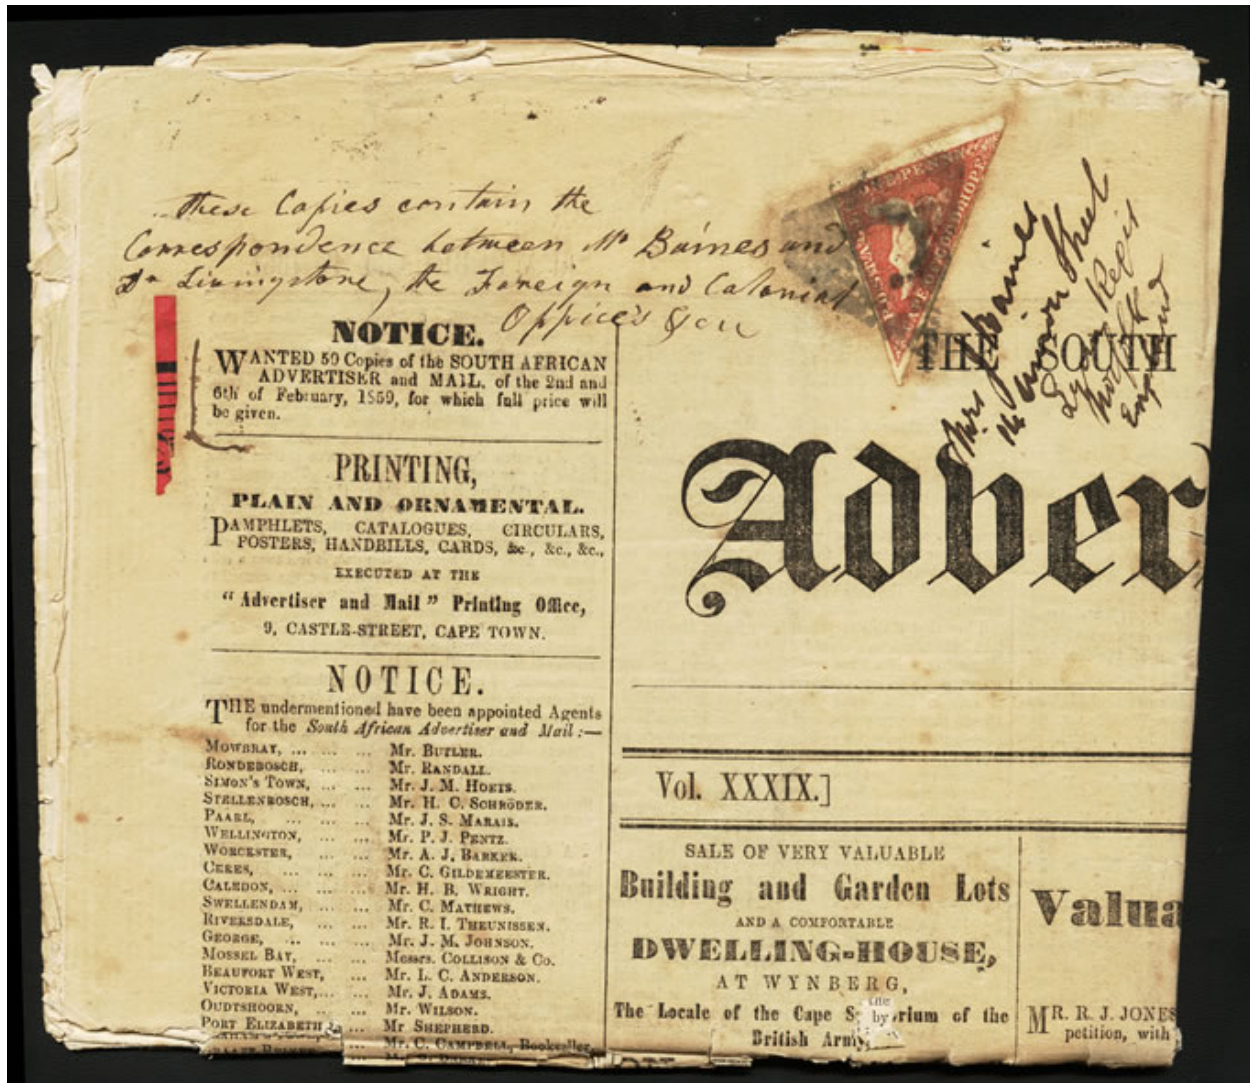 These Copies contain the
Correspondence between Mr Baines and
Dr Livingstone, the Foreign and Colonial
Office's &c
ONE PENNY
CAPE OF GOOD HOPE
POSTAGE
Mrs Baines
14 Union Street
Lynn Regis
Norfolk
England
NOTICE.
WANTED 50 Copies of the SOUTH AFRICAN
ADVERTISER and MAIL, of the 2nd and
6th of February, 1859, for which full price will
be given.
PRINTING,
PLAIN AND ORNAMENTAL.
PAMPHLETS, CATALOGUES, CIRCULARS,
POSTERS, HANDBILLS, CARDS, &c., &c., &c.,
EXECUTED AT THE
“Advertiser and Mail” Printing Office,
9, CASTLE-STREET, CAPE TOWN.
NOTICE.
THE undermentioned have been appointed Agents
for the South African Advertiser and Mail:—
MOWBRAY, ... ... ... Mr. BUTLER.
RONDEBOSCH, ... ... Mr. RANDALL.
SIMON'S TOWN, ... ... Mr. J. M. HOETS.
STELLENBOSCH, ... ... Mr. H. C. SCHRÖDER.
PAARL, ... ... ... Mr. J. S. MARAIS.
WELLINGTON, ... ... Mr. P. J. PENTZ.
WORCESTER, ... ... Mr. A. J. BARKER.
CERES, ... ... ... Mr. C. GILDEMEESTER.
CALEDON, ... ... ... Mr. H. B. WRIGHT.
SWELLENDAM, ... ... Mr. C. MATHEWS.
RIVERSDALE, ... ... Mr. R. I. THEUNISSEN.
GEORGE, ... ... ... Mr. J. M. JOHNSON.
MOSSEL BAY, ... Messrs. COLLISON & Co.
BEAUFORT WEST, ... Mr. L. C. ANDERSON.
VICTORIA WEST,... ... Mr. J. ADAMS.
OUDTSHOORN, ... ... Mr. WILSON.
PORT ELIZABETH ... Mr SHEPHERD.
... Mr. C. CAMPBELL, Bookseller,
THE SOUTH
Adver
Vol. XXXIX.]
SALE OF VERY VALUABLE
Building and Garden Lots
AND A COMFORTABLE
DWELLING-HOUSE,
AT WYNBERG,
The Locale of the Cape of the
British Army
Valua
MR. R. J. JONES
petition, with